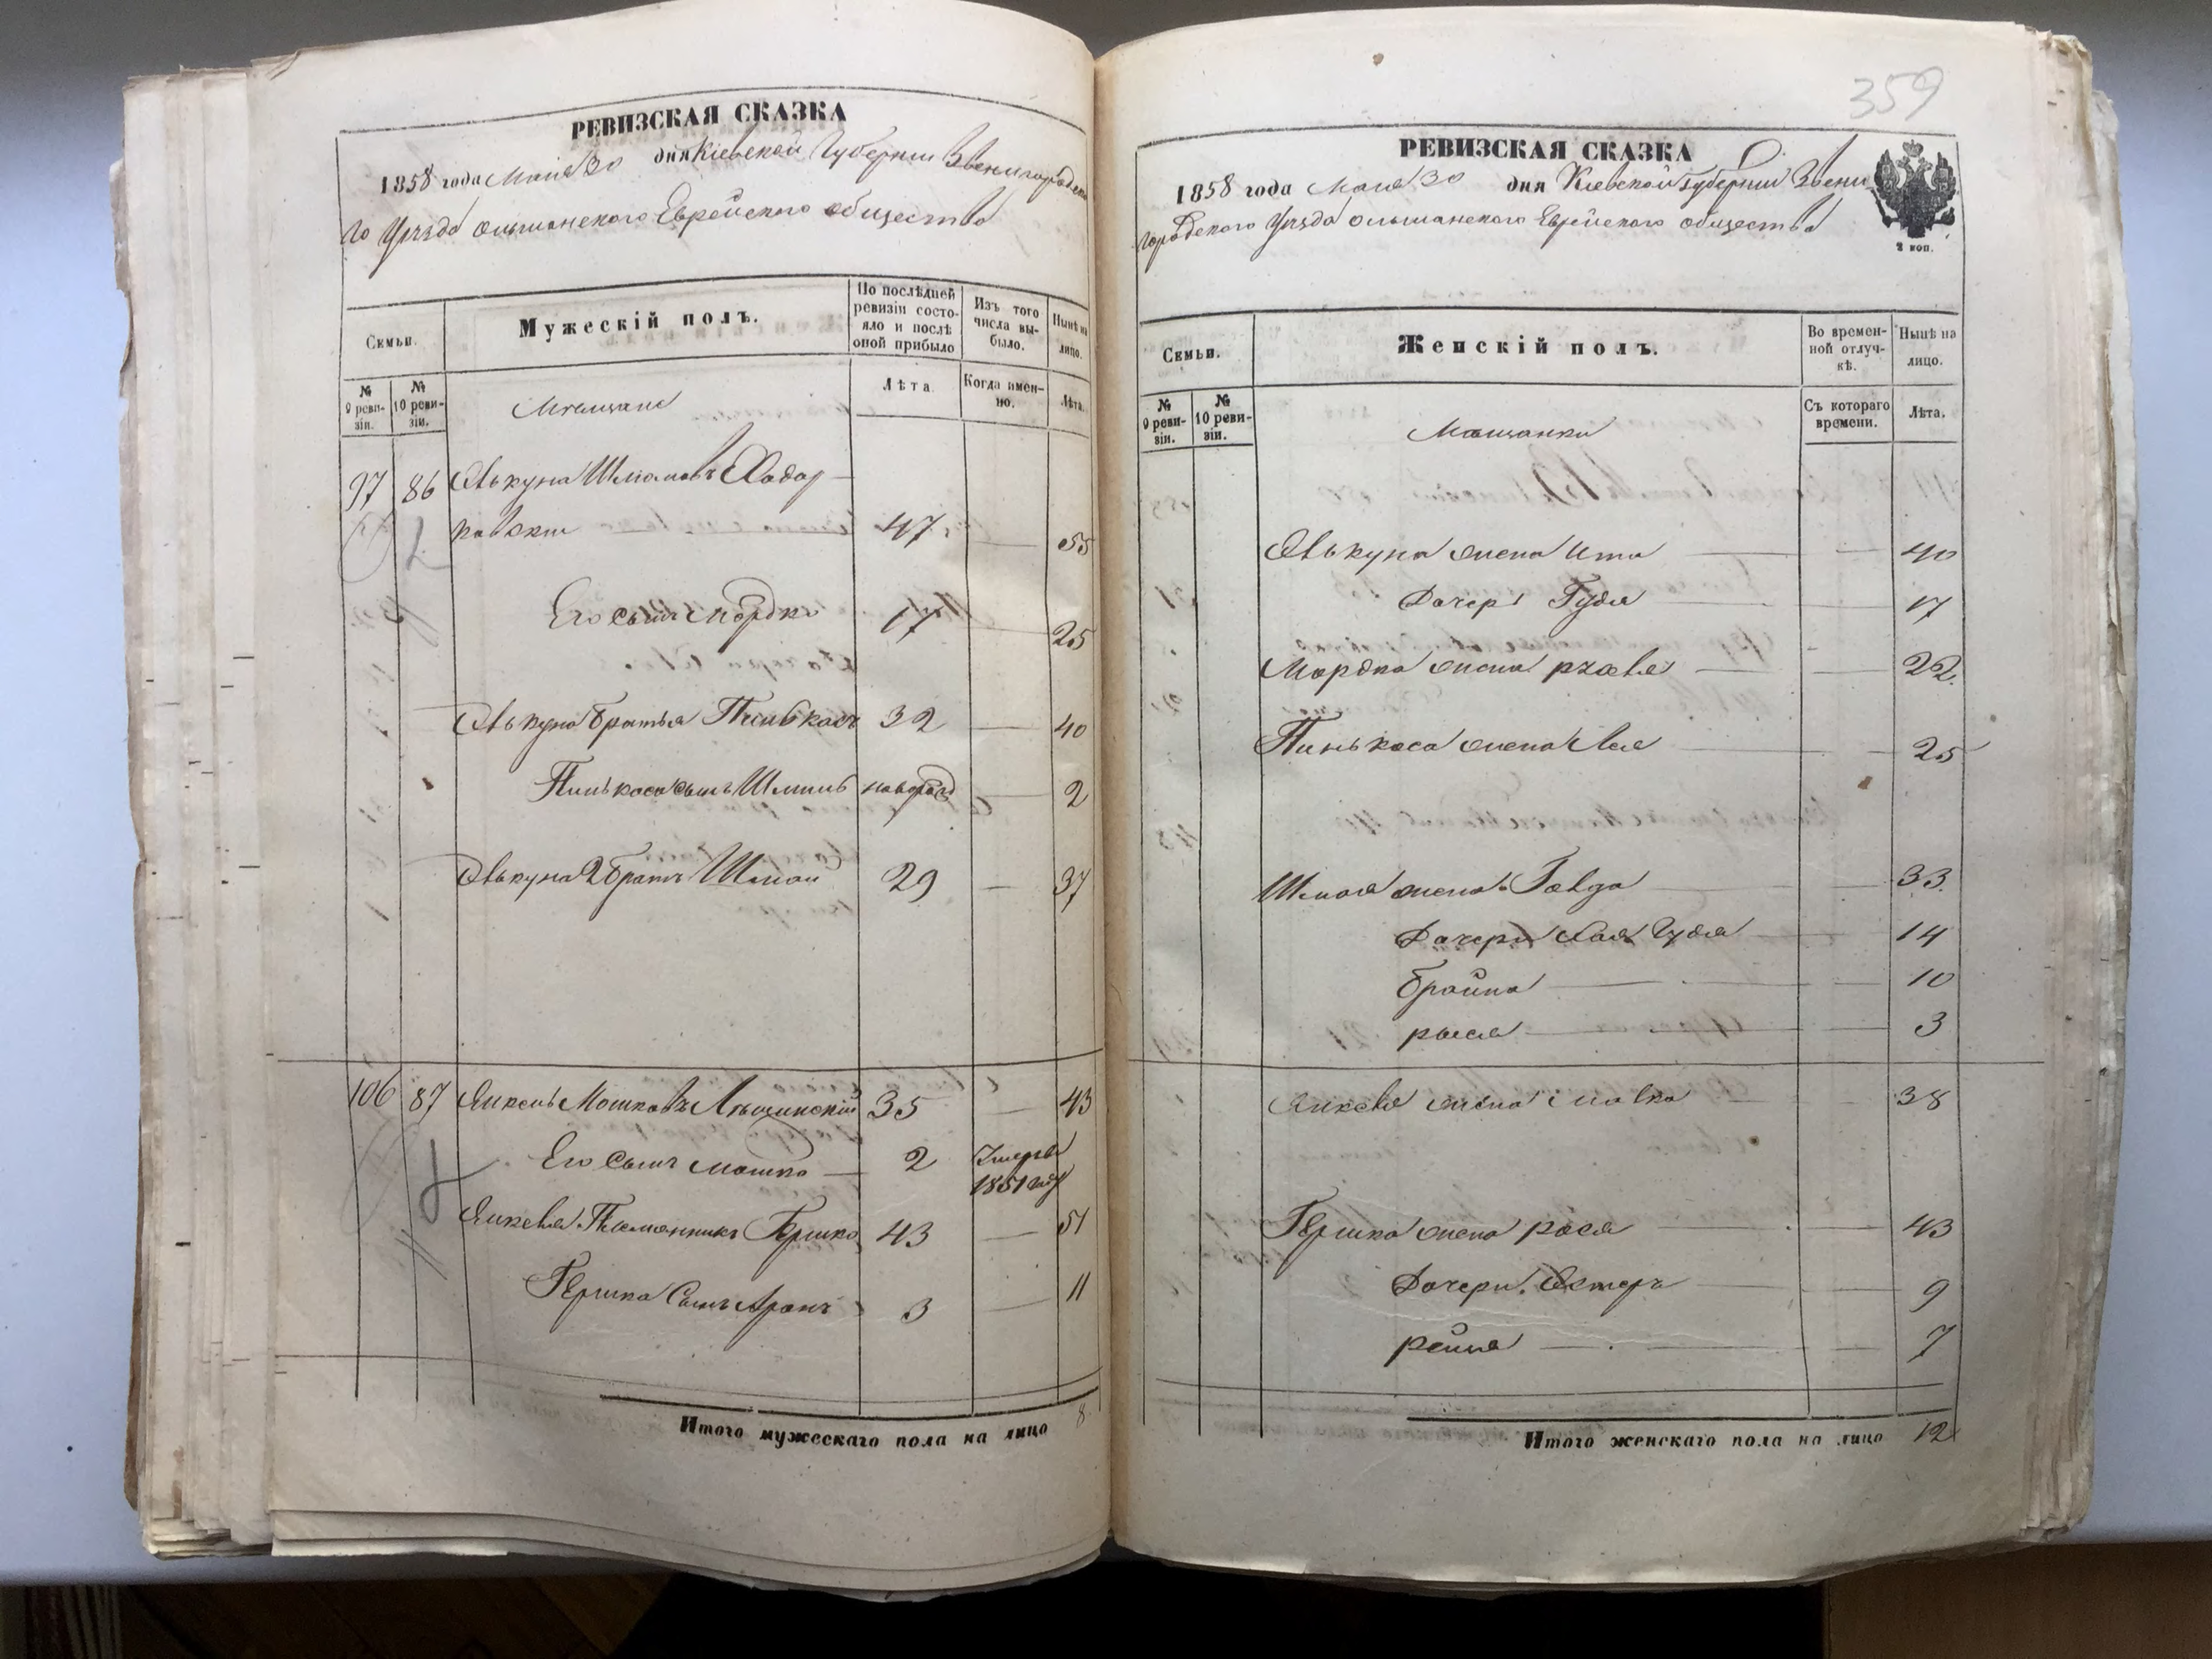 РЕВИЗСКАЯ СКАЗКА
1858 года Мая 30 дня Кіевской Губерніи Звенигородска
го Уѣзда Ольшанского Еврейского общества
Семьи.
Мужескій полъ.
По послѣдней ревизіи состояло и послѣ оной прибыло
Изъ того числа выбыло.
Нынѣ на лицо.
№ 9 ревизіи.
№ 10 ревизіи.
Мѣщане
Лѣта
Когда именно.
Лѣта.
97 86 Авькуна Шмолевъ
47 — 55
Его сынъ Мордко 17 — 25
Авькуна братья Пинькасъ 32 — 40
Пинькаса сынъ Шмиль новорожд — 2
Авькуна 2 братъ Шмай 29 — 37
106 87 Янкель Мошковъ 35 — 43
Его Сынъ Мошко — 2 Умеръ
1851 году
Янкеля Племянникъ Гершко 43 — 51
Гершка Сынъ Аронъ 3 — 11
Итого мужескаго пола на лицо 8
359
РЕВИЗСКАЯ СКАЗКА
1858 года Мая 30 дня Кіевской Губерніи Звени
городского Уѣзда Ольшанского Еврейского общества
2 коп.
Семьи.
Женскій полъ.
Во временной отлучкѣ.
Нынѣ на лицо.
№ 9 ревизіи.
№ 10 ревизіи.
Мѣщанки
Съ котораго времени.
Лѣта.
Авькуна жена Ита — 40
Дочерь Гудя — 17
Мордка жена — 22
Пинькаса жена — 25
Шмая жена — 33
Дочери Хая Гудя — 14
Брайна — 10
Рыся — 3
Янкеля жена Малка — 38
Гершка жена Рася — 43
Дочери Естеръ — 9
Рейзя — 7
Итого женскаго пола на лицо 12